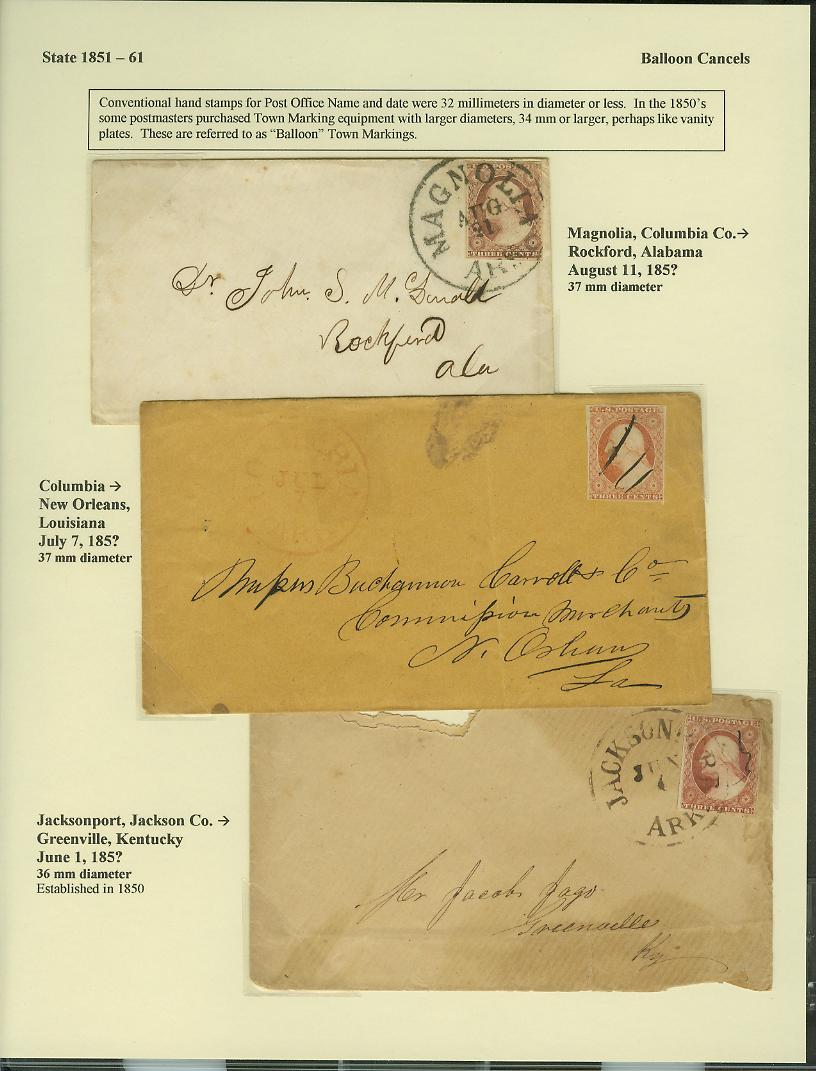 State 1851 – 61
Balloon Cancels
Conventional hand stamps for Post Office Name and date were 32 millimeters in diameter or less. In the 1850's
some postmasters purchased Town Marking equipment with larger diameters, 34 mm or larger, perhaps like vanity
plates. These are referred to as “Balloon” Town Markings.
MAGNOLIA
AUG
ARK
THREE CENTS
Dr. John. S. M.
Rockford
Ala
Magnolia, Columbia Co.→
Rockford, Alabama
August 11, 185?
37 mm diameter
U.S. POSTAGE
THREE CENTS
Columbia →
New Orleans,
Louisiana
July 7, 185?
37 mm diameter
Buchannon Carroll & Co
Commission Merchants
N. Orleans
La
JACKSON
JUN
1
ARK
U.S. POSTAGE
THREE CENTS
Jacksonport, Jackson Co. →
Greenville, Kentucky
June 1, 185?
36 mm diameter
Established in 1850
Mr Jacob Jago
Greenville
Ky